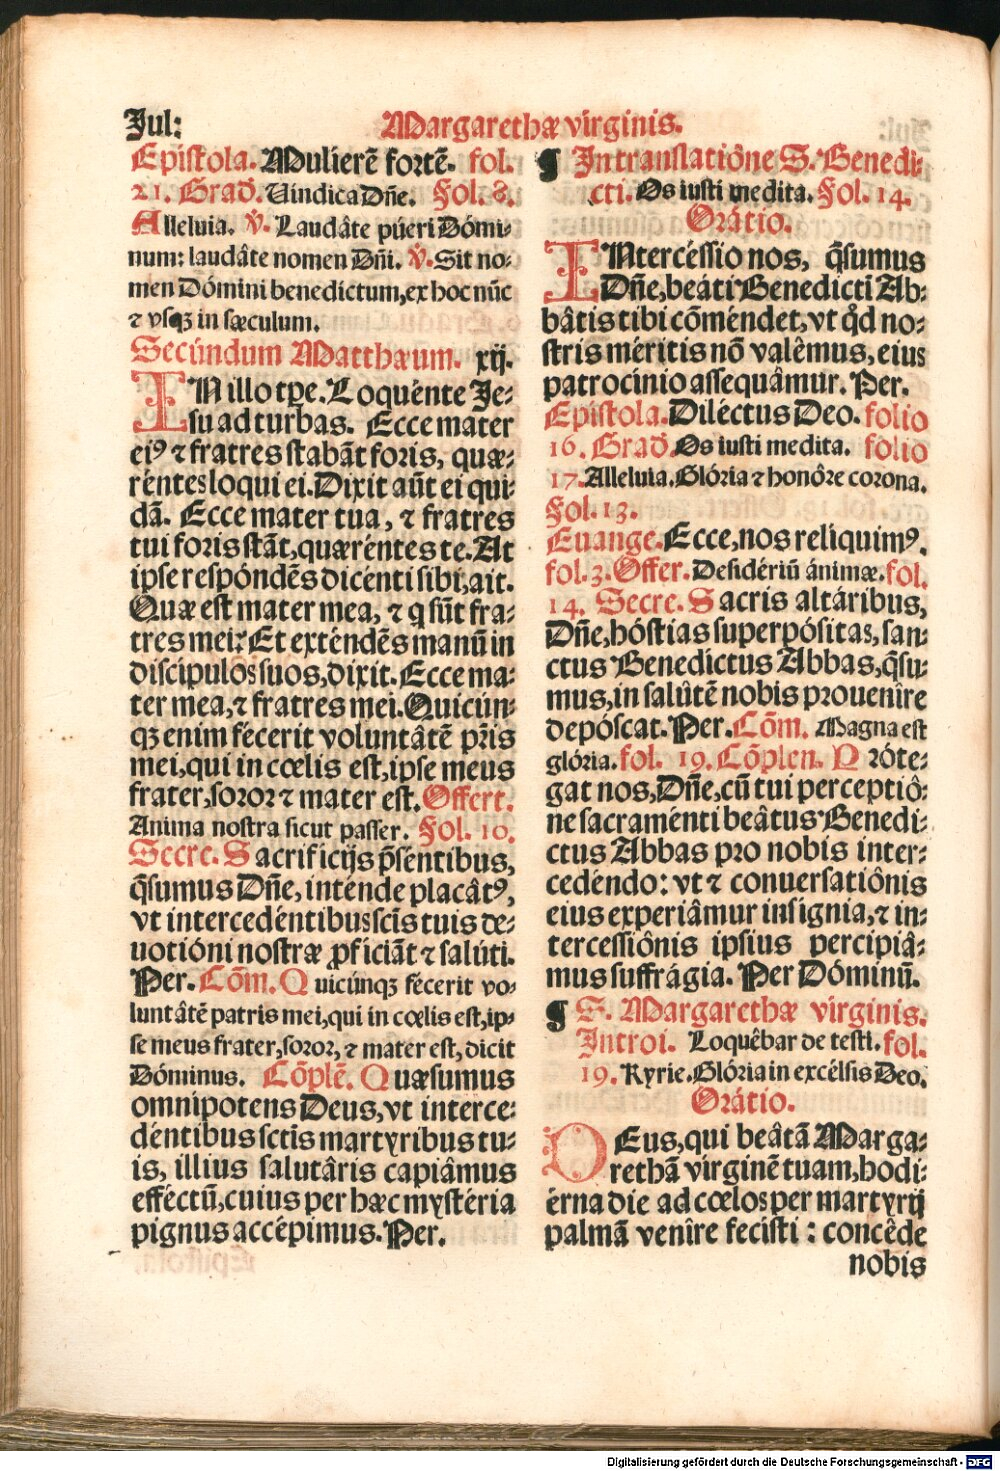 Jul: Margarethæ virginis.
Epistola. Mulierē fortē. fol.
21. Grad. Uindica Dn̄e. Fol. 8.
Alleluia. ℣. Laudâte púeri Dómi-
num: laudâte nomen Dn̄i. ℣. Sit no-
men Dómini benedictum, ex hoc nūc
⁊ vsqꝫ in sæculum.
Secúndum Matthæum. xij.
IN illo tꝑe. Loquénte Je-
su ad turbas. Ecce mater
eiꝰ ⁊ fratres stabāt foris, quæ-
réntes loqui ei. Dixit aūt ei qui-
dā. Ecce mater tua, ⁊ fratres
tui foris stāt, quæréntes te. At
ipse respóndēs dicénti sibi, ait.
Quæ est mater mea, ⁊ q sūt fra-
tres mei? Et exténdēs manū in
discípulos suos, dixit. Ecce ma-
ter mea, ⁊ fratres mei. Quicún-
qꝫ enim fécerit voluntâtē pr̄is
mei, qui in cœlis est, ipse meus
frater, soror ⁊ mater est. Offert.
Anima nostra sicut passer. Fol. 10.
Secre. Sacrificijs p̄séntibus,
q̄sumus Dn̄e, inténde placâtꝰ,
vt intercedéntibus sc̄is tuis de-
uotióni nostræ ꝓficiāt ⁊ salúti.
Per. Cōm. Quicúnqꝫ fécerit vo-
luntâtē patris mei, qui in cœlis est, ip-
se meus frater, soror, ⁊ mater est, dicit
Dóminus. Cōplē. Quæsumus
omnipotens Deus, vt interce-
déntibus sctīs martyribus tu-
is, illius salutâris capiâmus
efféctū, cuius per hæc mystéria
pignus accépimus. Per.
¶ In translatiône S. Benedi-
cti. Os iusti medita. Fol. 14.
Orátio.
INtercéssio nos, q̄sumus
Dn̄e, beáti Benedicti Ab-
bâtis tibi cōméndet, vt qd̄ no-
stris méritis nō valêmus, eius
patrocinio assequâmur. Per.
Epistola. Diléctus Deo. folio
16. Grad. Os iusti medita. folio
17. Alleluia. Glória ⁊ honôre corona.
Fol. 13.
Euange. Ecce, nos reliquimꝰ.
fol. 3. Offer. Desidériū ánimæ. fol.
14. Secre. Sacris altáribus,
Dn̄e, hóstias superpósitas, san-
ctus Benedictus Abbas, q̄su-
mus, in salûtē nobis prouenîre
depóscat. Per. Cōm. Magna est
glória. fol. 19. Cōplen. Próte-
gat nos, Dn̄e, cū tui perceptiô-
ne sacraménti beâtus Benedi-
ctus Abbas pro nobis inter-
cedéndo: vt ⁊ conuersatiônis
eius experiâmur insígnia, ⁊ in-
tercessiônis ipsius percipiâ-
mus suffrágia. Per Dóminū.
¶ S. Margarethæ virginis.
Introi. Loquêbar de testi. fol.
19. Kyrie. Glória in excélsis Deo.
Orátio.
DEus, qui beâtā Marga-
rethā virginē tuam, hodi-
érna die ad cœlos per martyrij
palmā venîre fecisti: concêde
nobis
Digitalisierung gefördert durch die Deutsche Forschungsgemeinschaft - DFG